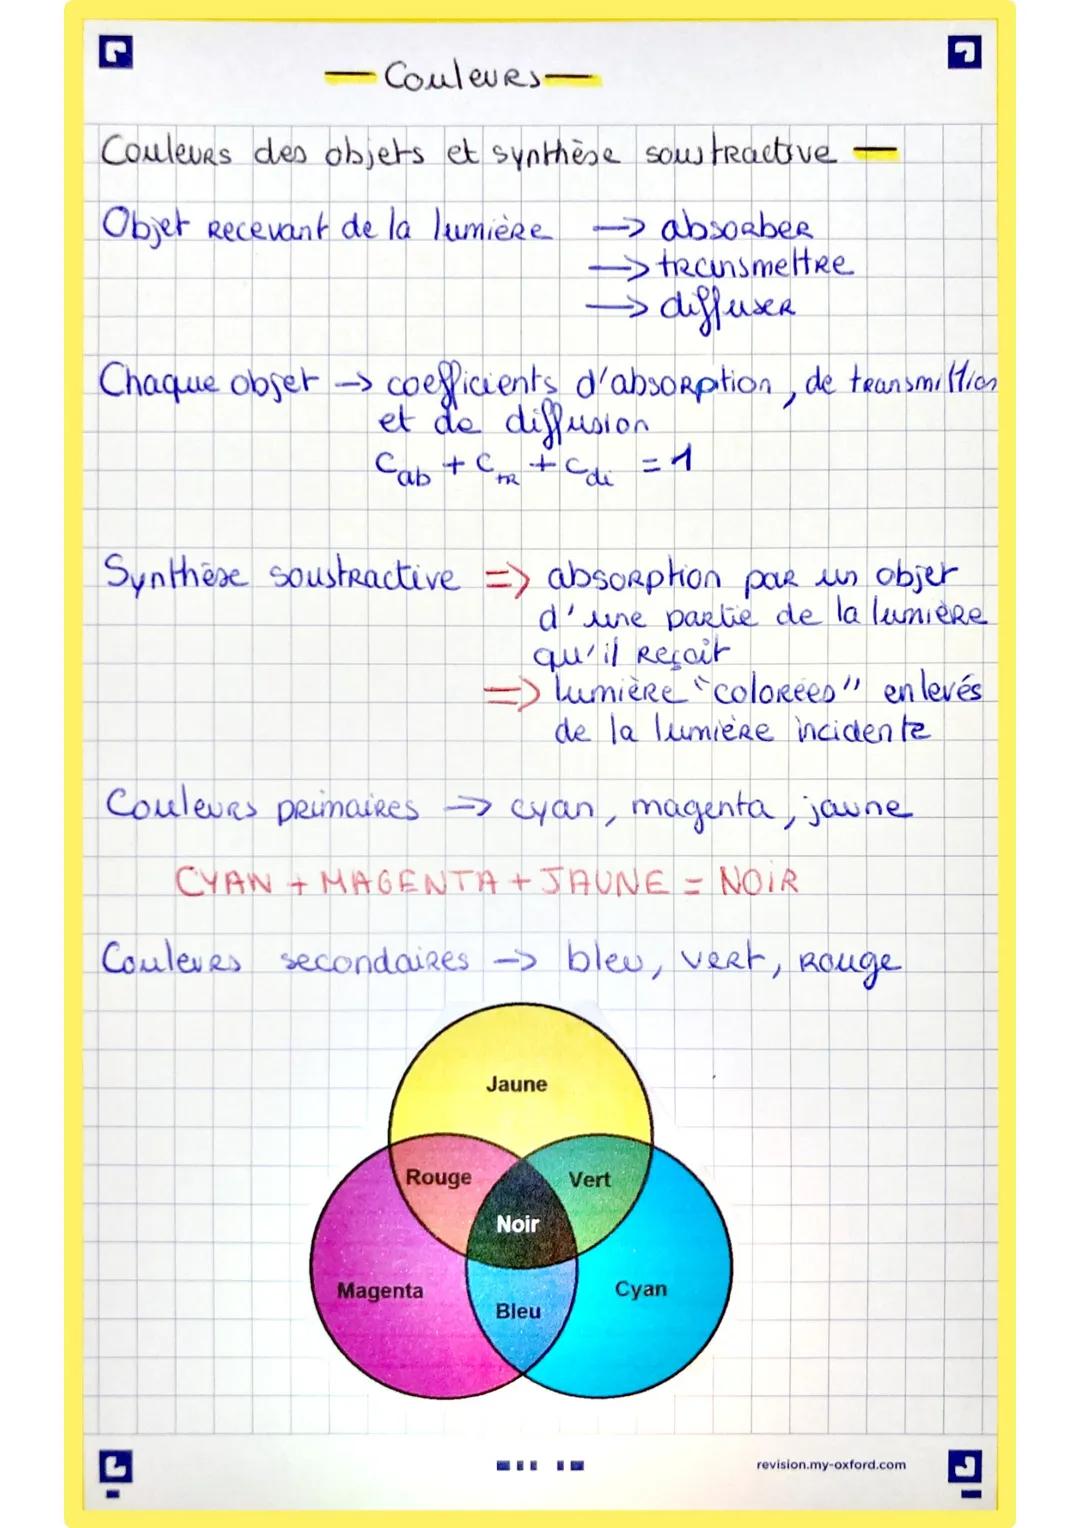 Couleurs
Couleurs des objets et synthèse soustractive
Objet recevant de la lumière → absorber
→ transmettre
→ diffuser
Chaque objet → coefficients d'absorption, de transmission
et de diffusion
Cab + Ctr + Cdi = 1
Synthèse soustractive => absorption par un objet
d'une partie de la lumière
qu'il reçoit
=> lumière "colorées" enlevés
de la lumière incidente
Couleurs primaires → cyan, magenta, jaune
CYAN + MAGENTA + JAUNE = NOIR
Couleurs secondaires → bleu, vert, rouge
Jaune
Rouge Vert
Noir
Magenta Cyan
Bleu
revision.my-oxford.com